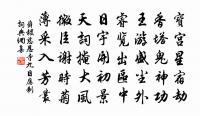 寶宮星宿劫
香塔鬼神功
王遊盛塵外
睿覽出區中
日宇開初景
天詞掩大風
微臣謝時菊
薄采入芳叢
薛稷慈恩寺九日應制
詞典網集